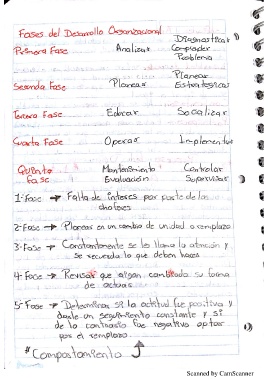 Fases del Desarrollo Organizacional
Primera Fase Analizar Diagnosticar
Comprender
Problema
Segunda Fase Planear Planear
Estrategicas
Tercera Fase Educar Socalizar
Cuarta Fase Operar Implementar
Quinta Mantenimiento Controlar
Fase Evaluación Supervisar
1-Fase → Falta de interes por parte de los
choferes
2-Fase → Planear en un cambio de unidad o remplazo
3-Fase → Constantemente se les llama la atención y
se recuerda lo que deben hacer
4-Fase → Revisar que algan cambiado su forma
de actuar
5-Fase → Determinar si la actitud fue positiva y
darle un seguimiento constante y si
de lo contrario fue negativo optar
por el remplazo
# Comportamiento
Scanned by CamScanner